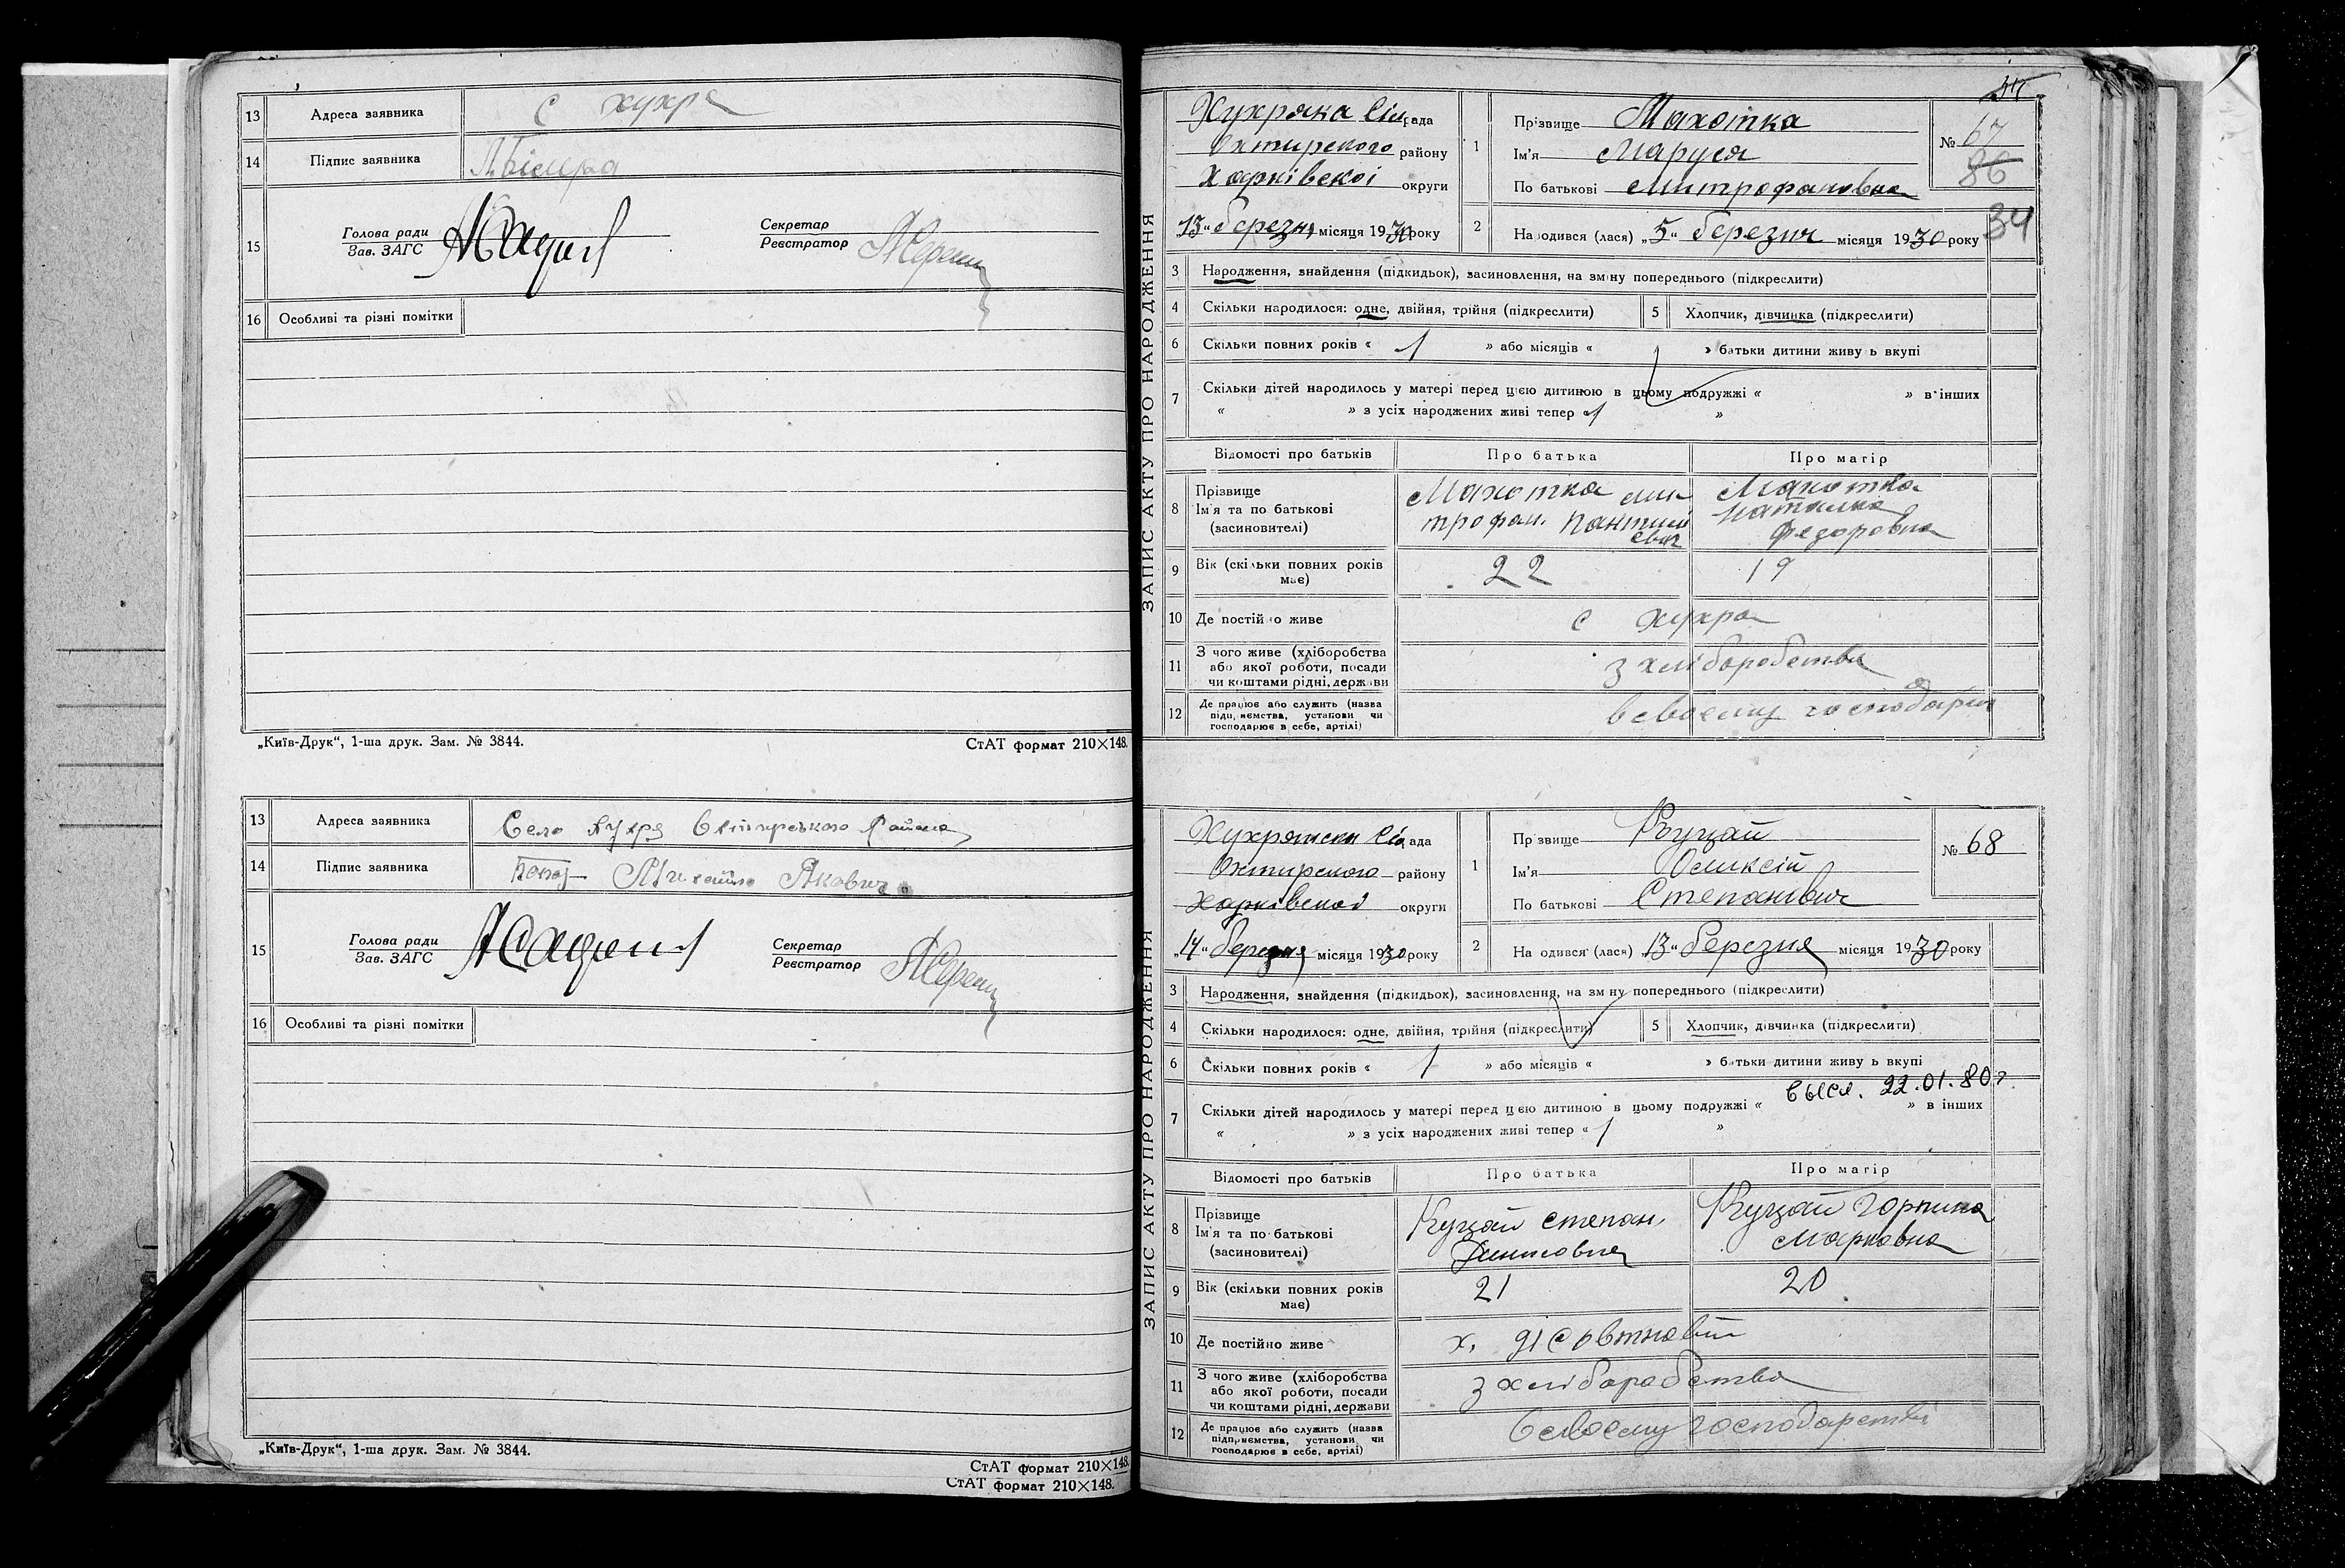 13 Адреса заявника с хухра
14 Підпис заявника
15 Голова ради
Зав. ЗАГС
Секретар
Реєстратор
16 Особливі та різні помітки
„Київ-Друк“, 1-ша друк. Зам. № 3844. СтАТ формат 210×148.
13 Адреса заявника Село Хухря Охтирського Района
14 Підпис заявника Михайло Якович
15 Голова ради
Зав. ЗАГС
Секретар
Реєстратор
16 Особливі та різні помітки
„Київ-Друк“, 1-ша друк. Зам. № 3844.
СтАТ формат 210×148.
СтАТ формат 210×148.
ЗАПИС АКТУ ПРО НАРОДЖЕННЯ
Хухряка Сілрада
Охтирского району
Харківскої округи
„13“ березня місяця 1930 року
1 Прізвище Махотка
Ім'я Маруся
По батькові Митрофановна
№ 67
86
34
2 Народився (лася) „5“ березня місяця 1930 року
3 Народження, знайдення (підкидьок), засиновлення, на зміну попереднього (підкреслити)
4 Скільки народилося: одне, двійня, трійня (підкреслити) 5 Хлопчик, дівчинка (підкреслити)
6 Скільки повних років « 1 » або місяців « » батьки дитини живу ь вкупі
7 Скільки дітей народилось у матері перед цією дитиною в цьому подружжі « » в інших
« » з усіх народжених живі тепер « 1 »
Відомості про батьків Про батька Про матір
8 Прізвище
Ім'я та по батькові
(засиновителі)
Махотка Ми
трофан. Пантий
евич
Махотка
Наталка
Федоровна
9 Вік (скільки повних років має) 22 19
10 Де постійно живе с хухра
11 З чого живе (хліборобства
або якої роботи, посади
чи коштами рідні, держави
з хліборобства
12 Де працює або служить (назва
підприємства, установи чи
господарює в себе, артілі)
в своєму господарстві
ЗАПИС АКТУ ПРО НАРОДЖЕННЯ
Хухрянски Сілрада
Охтирского району
Харківскої округи
„14“ березня місяця 1930 року
1 Прізвище Куцай
Ім'я Оликсій
По батькові Степанович
№ 68
2 На одився (лася) „13“ березня місяця 1930 року
3 Народження, знайдення (підкидьок), засиновлення, на зміну попереднього (підкреслити)
4 Скільки народилося: одне, двійня, трійня (підкреслити) 5 Хлопчик, дівчинка (підкреслити)
6 Скільки повних років « 1 » або місяців « » батьки дитини живу ь вкупі
высл. 22.01.80г.
7 Скільки дітей народилось у матері перед цією дитиною в цьому подружжі « » в інших
« » з усіх народжених живі тепер « 1 »
Відомості про батьків Про батька Про матір
8 Прізвище
Ім'я та по батькові
(засиновителі)
Куцай Степан
Денисович
Куцай Горпина
Марковна
9 Вік (скільки повних років має) 21 20
10 Де постійно живе х.
11 З чого живе (хліборобства
або якої роботи, посади
чи коштами рідні, держави
з хліборобства
12 Де працює або служить (назва
підприємства, установи чи
господарює в себе, артілі)
в своєму господарстві